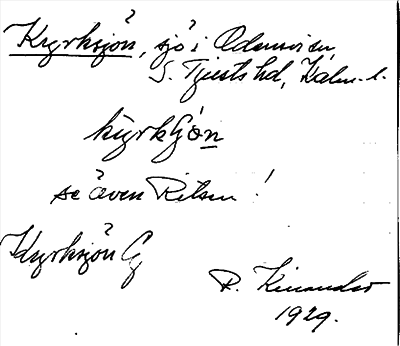 Kyrksjön, sjö i Odensvi sn,
S. Tjusts hd, Kalm. l.
kyrkʃọ̈n
se även Ritsen!
Kyrksjön G
R. Kinander
1929.